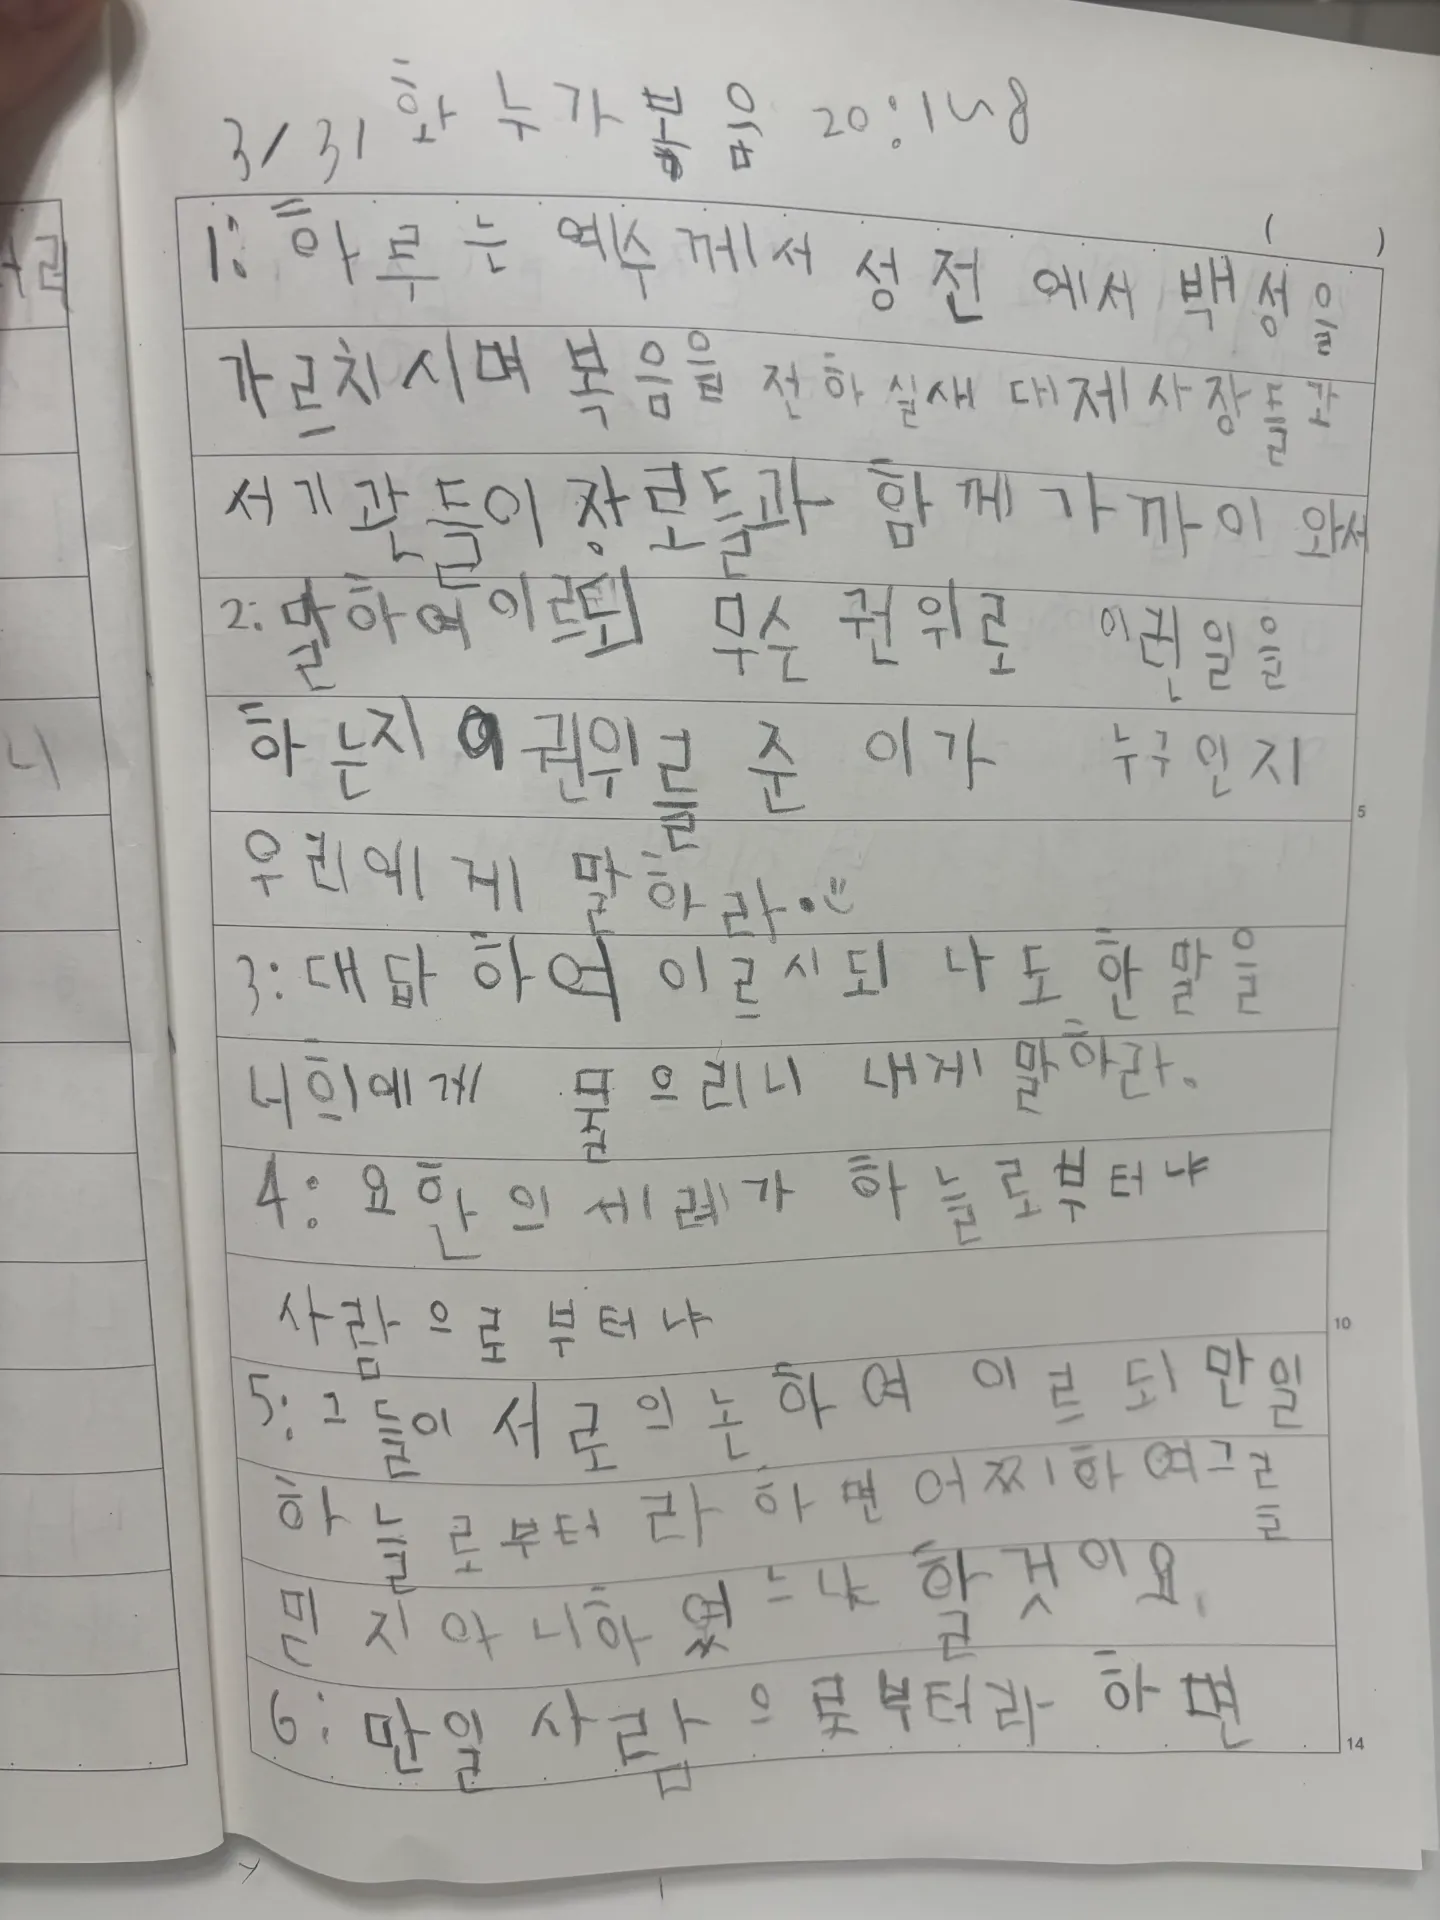 3/31 화 누가복음 20:1~8
( )
1: 하루는 예수께서 성전에서 백성을
가르치시며 복음을 전하실새 대제사장들과
서기관들이 장로들과 함께 가까이 와서
2: 말하여 이르되 무슨 권위로 이런일을
하는지 이 권위를 준 이가 누구인지
5
우리에게 말하라.
3: 대답하여 이르시되 나도 한 말을
너희에게 물으리니 내게 말하라.
4: 요한의 세례가 하늘로부터냐
사람으로부터냐
10
5: 그들이 서로 의논하여 이르되 만일
하늘로부터라 하면 어찌하여 그를
믿지 아니하였느냐 할것이요.
6: 만일 사람으로부터라 하면
14